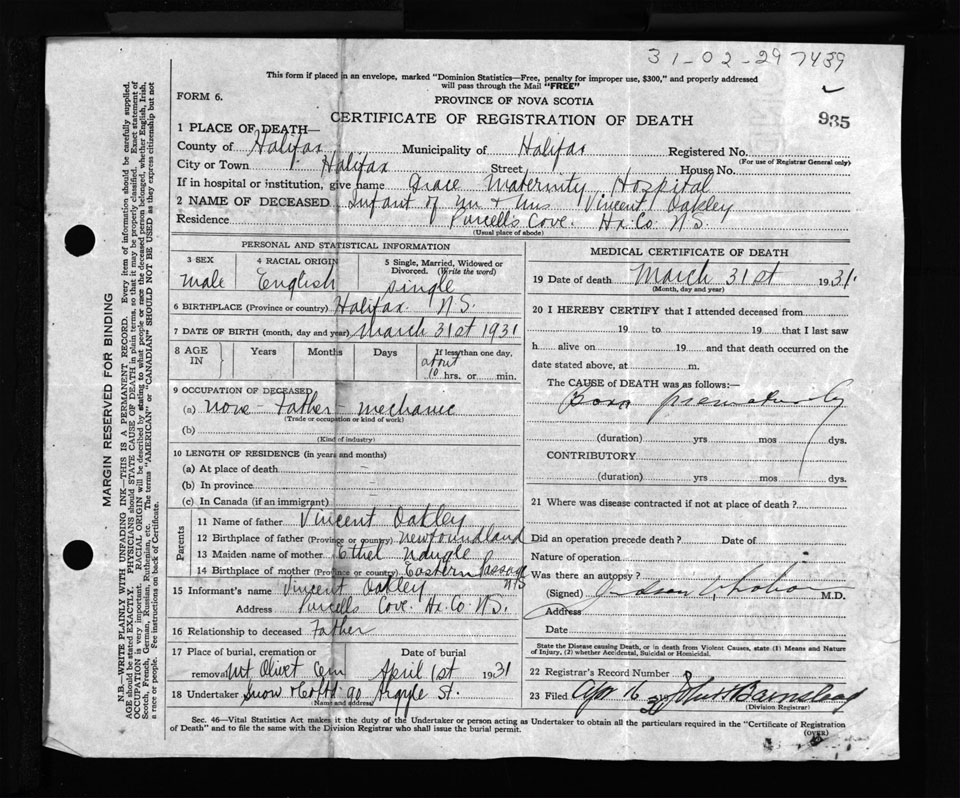 31-02-29 7439
This form if placed in an envelope, marked "Dominion Statistics—Free, penalty for improper use, $300," and properly addressed
will pass through the Mail "FREE"
FORM 6.
PROVINCE OF NOVA SCOTIA
CERTIFICATE OF REGISTRATION OF DEATH
935
1 PLACE OF DEATH—
County of Halifax Municipality of Halifax Registered No.
(For use of Registrar General only)
City or Town Halifax Street House No.
If in hospital or institution, give name Grace Maternity Hospital
2 NAME OF DECEASED Infant of Mr + Mrs Vincent Oakley
Residence Purcell's Cove. Hx. Co. N.S.
(Usual place of abode)
PERSONAL AND STATISTICAL INFORMATION
3 SEX
Male
4 RACIAL ORIGIN
English
5 Single, Married, Widowed or
Divorced. (Write the word)
Single
6 BIRTHPLACE (Province or country) Halifax N.S.
7 DATE OF BIRTH (month, day and year) March 31st 1931
8 AGE
IN
Years
Months
Days
If less than one day,
about
10 hrs. or min.
9 OCCUPATION OF DECEASED
(a) None - Father - Mechanic
(Trade or occupation or kind of work)
(b)
(Kind of industry)
10 LENGTH OF RESIDENCE (in years and months)
(a) At place of death
(b) In province
(c) In Canada (if an immigrant)
Parents
11 Name of father Vincent Oakley
12 Birthplace of father (Province or country) Newfoundland
13 Maiden name of mother Ethel Naugle
14 Birthplace of mother (Province or country) Eastern Passage
N.S
15 Informant's name Vincent Oakley
Address Purcells Cove. Hx. Co. N.S.
16 Relationship to deceased Father
17 Place of burial, cremation or Date of burial
removal Mt Olivet Cem April 1st 1931
18 Undertaker Snow & Co Ltd 90 Argyle St.
(Name and address)
MEDICAL CERTIFICATE OF DEATH
19 Date of death March 31st 1931.
(Month, day and year)
20 I HEREBY CERTIFY that I attended deceased from
19 to 19 that I last saw
h alive on 19 and that death occurred on the
date stated above, at m.
The CAUSE of DEATH was as follows:—
Born prematurely
(duration) yrs mos dys.
CONTRIBUTORY
(duration) yrs mos dys.
21 Where was disease contracted if not at place of death?
Did an operation precede death? Date of
Nature of operation
Was there an autopsy?
(Signed) M.D.
Address
Date
State the Disease causing Death, or in death from Violent Causes, state (1) Means and Nature
of Injury, (2) whether Accidental, Suicidal or Homicidal.
22 Registrar's Record Number
23 Filed Apr 16 31 John H Barnstead
(Division Registrar)
Sec. 46—Vital Statistics Act makes it the duty of the Undertaker or person acting as Undertaker to obtain all the particulars required in the "Certificate of Registration
of Death" and to file the same with the Division Registrar who shall issue the burial permit.
(OVER)
MARGIN RESERVED FOR BINDING
N.B.—WRITE PLAINLY WITH UNFADING INK—THIS IS A PERMANENT RECORD. Every item of information should be carefully supplied.
AGE should be stated EXACTLY. PHYSICIANS should STATE CAUSE OF DEATH in plain terms, so that it may be properly classified. Exact statement of
OCCUPATION is very important. RACIAL ORIGIN will be described by stating to what people or race the deceased person belonged, whether English, Irish,
Scotch, French, German, Russian, Ruthenian, etc. The terms "AMERICAN" or "CANADIAN" SHOULD NOT BE USED as they express citizenship but not
a race or people. See instructions on back of Certificate.